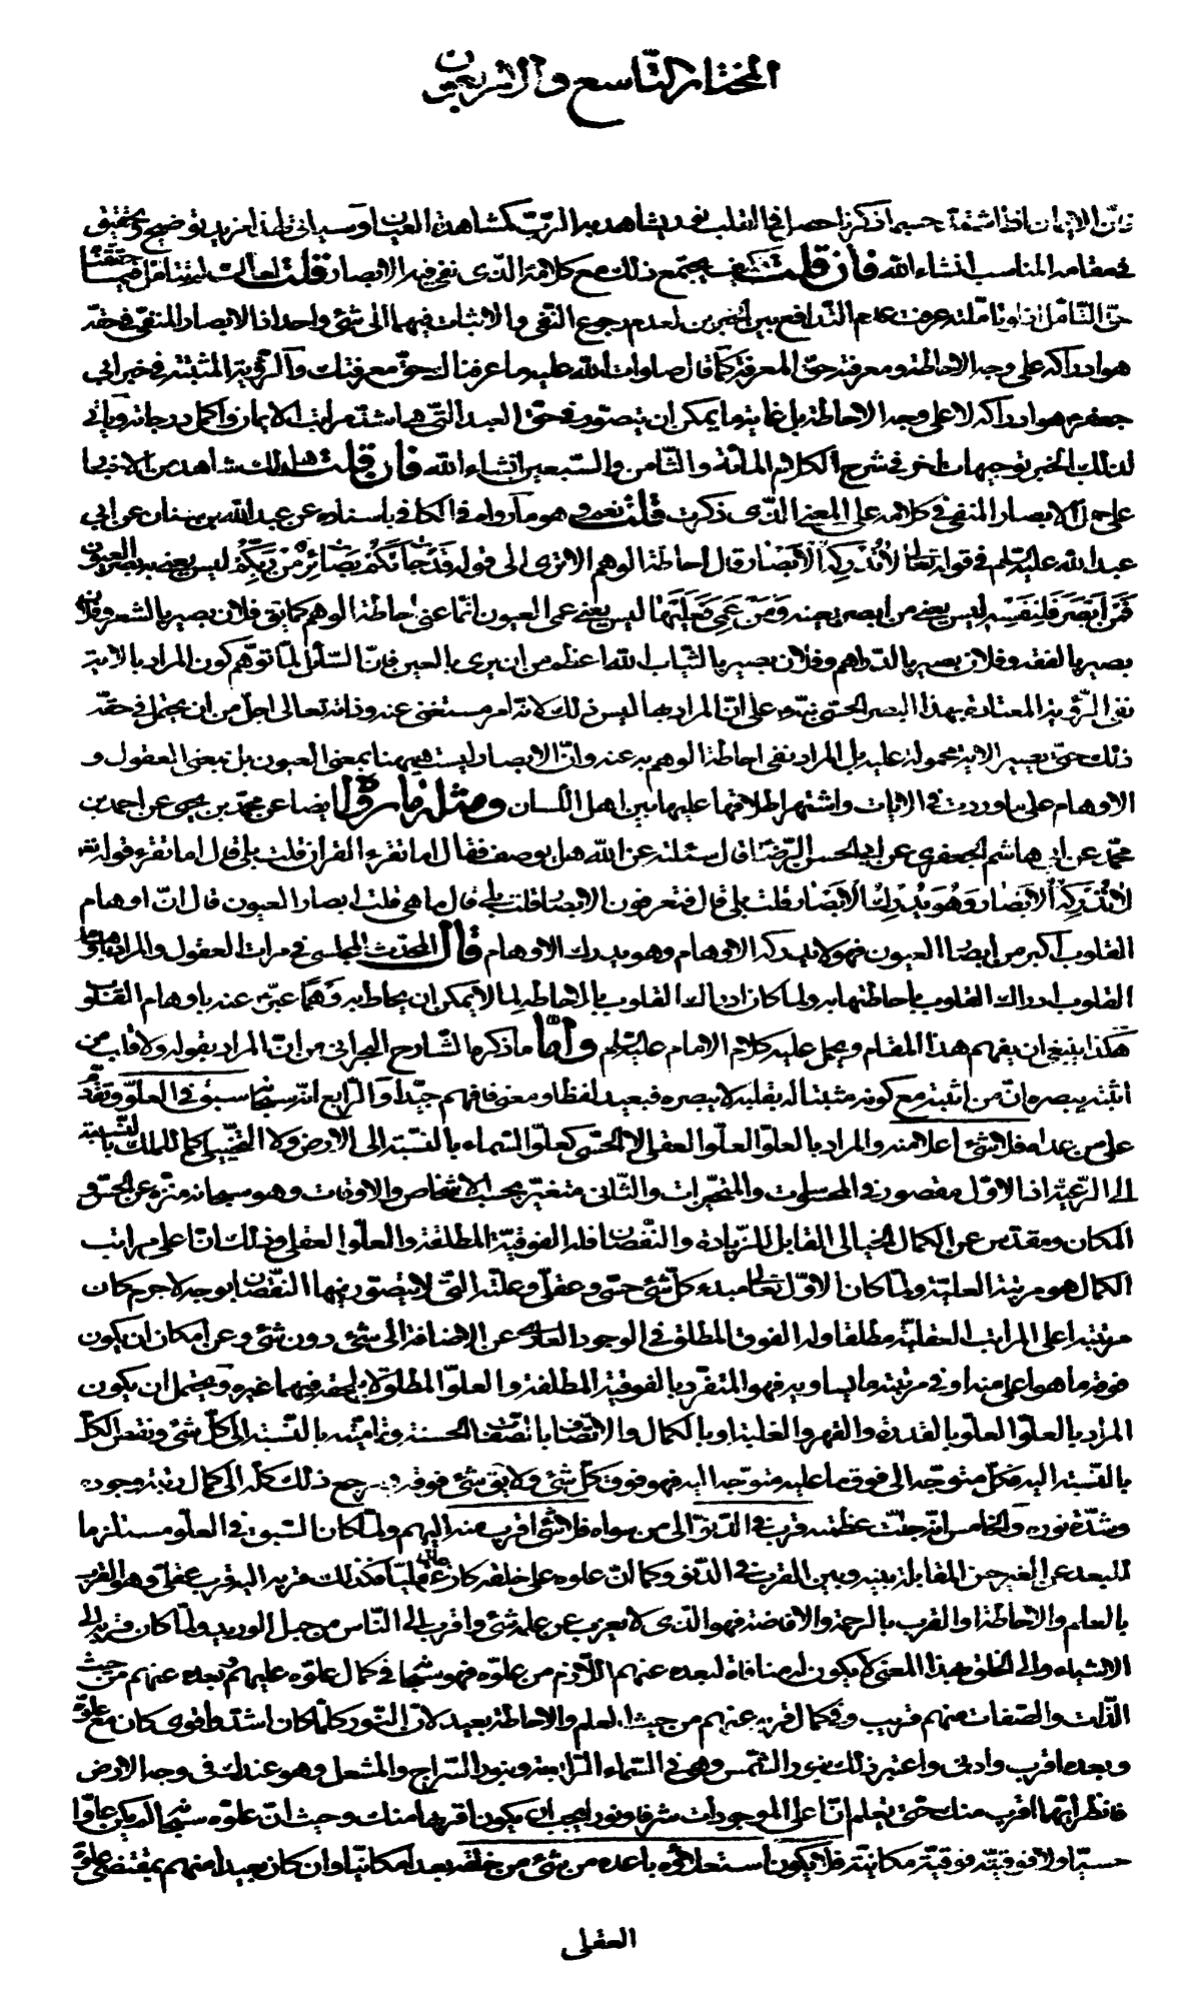 المختار التاسع والاربعون
فان الايمان اذا اشتد حسبما ذكرنا حصل في القلب نور يشاهد به الرب كمشاهدة العيان وسياتي لهذا مزيد توضيح وتحقيق
في مقامه المناسب انشاء الله فان قلت فكيف يجتمع ذلك مع كلامه الذى نفى فيه الابصار قلت لعلك لم تتامل فيما حققنا
حق التامل اذ لو تاملته عرفت عدم التدافع بين الخبرين لعدم رجوع النفى والاثبات فيهما الى شئ واحد اذ الابصار المنفى في حقه
هو ادراكه على وجه الاحاطة ومعرفته حق المعرفة كما قال صلوات الله عليه ما عرفناك حق معرفتك والرؤية المثبتة في خبر ابي
جعفر هو ادراكه لا على وجه الاحاطة بل غاية ما يمكن ان يتصور في حق العبد التى هى اشد مراتب الايمان واكمل درجاته وياتى
لذلك الخبر توجيهات اخر في شرح الكلام المائة والثامن والسبعين انشاء الله فان قلت هل لك شاهد من الاخبار
على حمل الابصار المنفى في كلامه على المعنى الذى ذكرت قلت نعم وهو ما رواه في الكافى باسناده عن عبد الله بن سنان عن ابي
عبد الله عليه السلم في قوله تعالى لا تدركه الابصار قال احاطة الوهم الا ترى الى قوله قد جائكم بصائر من ربكم ليس يعنى بصر العيون
فمن ابصر فلنفسه ليس يعنى من ابصر بعينه ومن عمى فعليها ليس يعنى عمى العيون انما عنى احاطة الوهم كما يق فلان بصير بالشعر وفلان
بصير بالفقه وفلان بصير بالدراهم وفلان بصير بالثياب الله اعظم من ان يرى بالعين فان السائل لما توهم كون المراد بالاية
نفى الرؤية المعتادة بهذا البصر الحسى نبه على ان المراد بها ليس ذلك لانه امر مستغنى عنه وذاته تعالى اجل من ان يحتمل في حقه
ذلك حتى يصير الاية محمولة عليه بل المراد نفى احاطة الوهم به عنه وان الابصار ليست هيهنا بمعنى العيون بل بمعنى العقول و
الاوهام على ما وردت في الايات واشتهر اطلاقها عليها بين اهل اللسان ومثله ما رواه ايضا عن محمد بن يحيى عن احمد بن
محمد عن ابي هاشم الجعفرى عن ابي الحسن الرضا قال سئلته عن الله هل يوصف فقال اما تقرء القران قلت بلى قال اما تقرء قوله تعالى
لا تدركه الابصار وهو يدرك الابصار قلت بلى قال فتعرفون الابصار قلت بلى قال ما هى قلت ابصار العيون قال ان اوهام
القلوب اكبر من ابصار العيون فهو لا يدركه الاوهام وهو يدرك الاوهام قال المحدث المجلسى في مرات العقول والمراد باوهام
القلوب ادراك القلوب باحاطتها به ولما كان ادراك القلوب بالاحاطة لما لا يمكن ان يحاط به وهما عبر عنه باوهام القلوب
هكذا ينبغى ان يفهم هذا المقام ويحمل عليه كلام الامام عليه السلم واما ما ذكره الشارح البحرانى من ان المراد بقوله ولا قلب من
اثبته يبصره ان من اثبته مع كونه مثبتا له بقلبه لا يبصره فبعيد لفظا ومعنى فافهم جيدا والرابع انه سبحانه سبق في العلو وتقدم
على من عداه فلا شئ اعلا منه والمراد بالعلو العلو العقلى لا الحسى كعلو السماء بالنسبة الى الارض ولا التخييلى كما للملك بالنسبة
الى الرعية اذ الاول مقصور في المحسوسات والمتحيزات والثانى متغير بحسب الاشخاص والاوقات وهو سبحانه منزه عن الحس و
المكان ومقدس عن الكمال الخيالى القابل للزيادة والنقصان فله الفوقية المطلقة والعلو العقلى وذلك ان اعلى مراتب
الكمال هو مرتبة العلية ولما كان الاول تعالى مبدء كل شئ حسى وعقلى وعلته التى لا يتصور فيها النقصان بوجه لا جرم كان
مرتبته اعلى المراتب العقلية مطلقا وله الفوق المطلق في الوجود العارى عن الاضافة الى شئ دون شئ وعن امكان ان يكون
فوقه ما هو اعلى منه او في مرتبته ما يساويه فهو المتفرد بالفوقية المطلقة والعلو المطلق لا يلحقه فيهما غيره ويحتمل ان يكون
المراد بالعلو العلو بالقدرة والقهر والغلبة او بالكمال والاتصاف بالصفات الحسنة وتماميته بالنسبة الى كل شئ ونقص الكل
بالنسبة اليه فكل متوجه الى فوق ما عليه متوجه اليه فهو فوق كل شئ ولا يق شئ فوقه ويرجع ذلك كله الى كمال رتبة وجوده
وشدة نوره والخامس انه جلت عظمته قرب في الدنو الى من سواه فلا شئ اقرب منه اليهم ولما كان السبق في العلو مستلزما
للبعد عن الغير حسن المقابلة بينه وبين القرب في الدنو وكما ان علوه على خلقه كان علوا عقليا فكذلك قربه اليه قرب عقلى وهو القرب
بالعلم والاحاطة او القرب بالرحمة والافاضة فهو الذى لا يعزب عن علمه شئ واقرب الى الناس من حبل الوريد ولما كان قربه الى
الاشياء والى الخلق بهذا المعنى لا يكون له منافاة لبعده عنهم اللازم من علوه فهو سبحانه في كمال علوه عليهم وبعده عنهم من حيث
الذات والصفات منهم قريب وفي كمال قربه عنهم من حيث العلم والاحاطة بعيد لان النور كلما كان اشد واقوى كان مع علوه
وبعده اقرب وادنى واعتبر ذلك بنور الشمس وهى في السماء الرابعة وبنور السراج والمشعل وهو عندك في وجه الارض
فانظر ايهما اقرب منك حتى تعلم ان اعلى الموجودات شرفا ونورا يجب ان يكون اقربها منك وحيث ان علوه سبحانه لم يكن علوا
حسيا ولا فوقيته فوقية مكانية فلا يكون استعلاؤه باعده من شئ من خلقه بعدا مكانيا وان كان بعيدا منهم بمقتضى علوه
العقلى